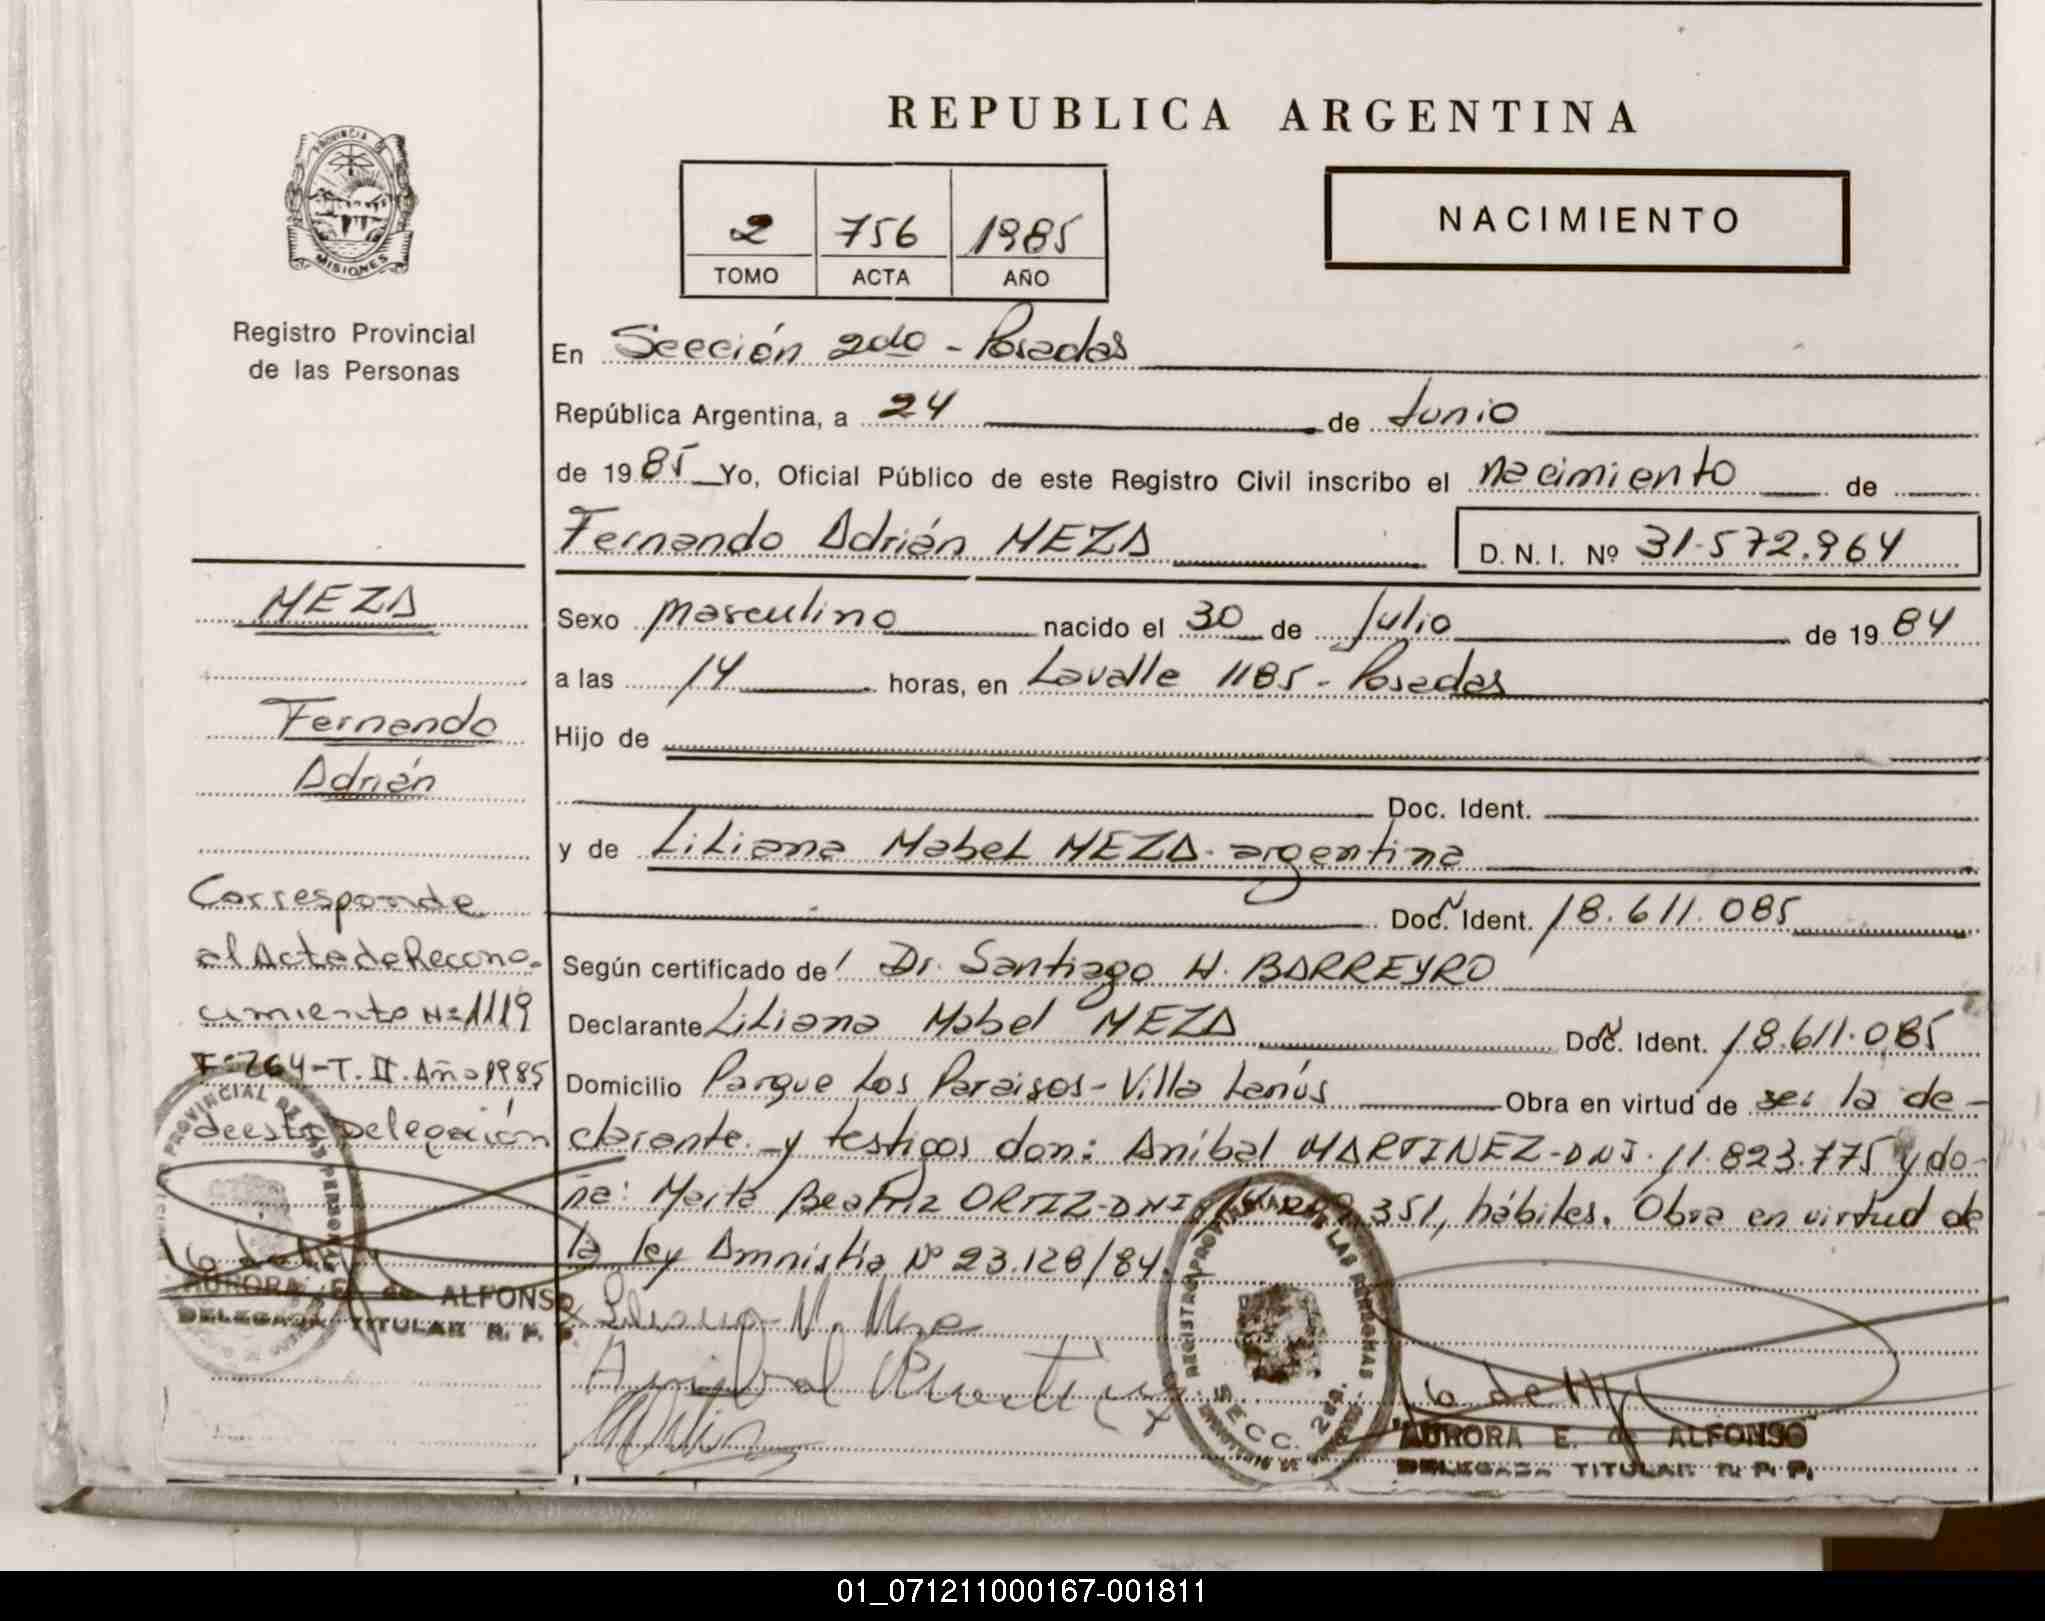 REPUBLICA ARGENTINA
PROVINCIA DE
MISIONES
Registro Provincial
de las Personas
2 756 1985
TOMO ACTA AÑO
NACIMIENTO
En Sección 2da - Posadas
República Argentina, a 24 de Junio
de 1985 Yo, Oficial Público de este Registro Civil inscribo el nacimiento de
Fernando Adrián MEZA
D. N. I. Nº 31.572.964
Sexo masculino nacido el 30 de Julio de 1984
a las 14 horas, en Lavalle 1185 - Posadas
Hijo de
Doc. Ident.
y de Liliana Mabel MEZA - argentina
Doc. Ident. 18.611.085
Según certificado de Dr. Santiago H. BARREYRO
Declarante Liliana Mabel MEZA Doc. Ident. 18.611.085
Domicilio Parque Los Paraisos - Villa Lanús Obra en virtud de ser la de-
clarante y testigos don: Aníbal MARTINEZ - DNI. 11.823.775 y do-
ña: Marta Beatriz ORTIZ - DNI 351, hábiles. Obra en virtud de
la ley Amnistía Nº 23.128/84.
Liliana M. Meza
Anibal Martinez
SECC. 2da.
AURORA E. de ALFONSO
DELEGADA TITULAR R. P. P.
MEZA
Fernando
Adrián
Corresponde
al Acta de Recono-
cimiento Nº 1119
Fº 264 - T. II. Año 1985
de esta Delegación
AURORA E. de ALFONSO
DELEGADA TITULAR R. P. P.
01_071211000167-001811